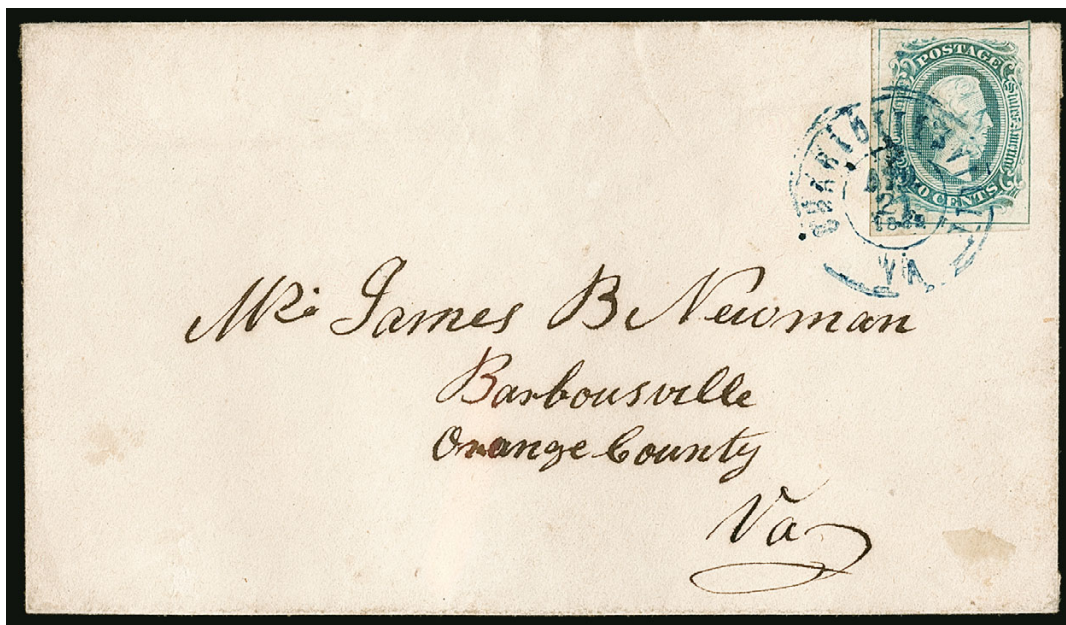 POSTAGE
States of America
CENTS
VA.
Mr. James B Newman
Barbousville
Orange County
Va